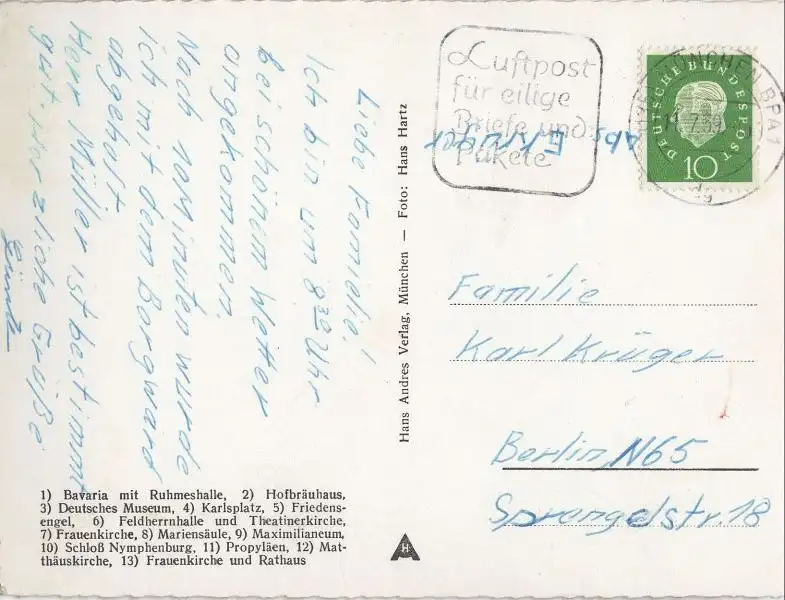 Liebe Familie!
Ich bin um 8³⁰ Uhr
bei schönem Wetter
angekommen.
Nach 10 Minuten wurde
ich mit dem Borgward
abgeholt.
Herr Müller ist bestimmt
gut. Herzliche Grüße
1) Bavaria mit Ruhmeshalle, 2) Hofbräuhaus,
3) Deutsches Museum, 4) Karlsplatz, 5) Friedens-
engel, 6) Feldherrnhalle und Theatinerkirche,
7) Frauenkirche, 8) Mariensäule, 9) Maximilianeum,
10) Schloß Nymphenburg, 11) Propyläen, 12) Mat-
thäuskirche, 13) Frauenkirche und Rathaus
Hans Andres Verlag, München — Foto: Hans Hartz
Luftpost
für eilige
Briefe und
Pakete
abs. E Krüger
MÜNCHEN BPA 1
7.59
DEUTSCHE BUNDESPOST
10
Familie
Karl Krüger
Berlin, N65
Sprengelstr. 18
H